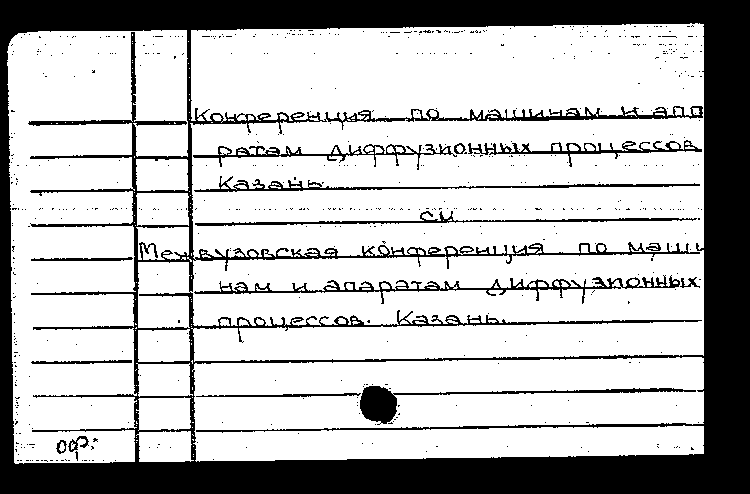 Конференция по машинам и апп
ратам диффузионных процессов
Казань.
см
Межвузовская конференция по маши
нам и апаратам диффузионных
процессов. Казань.
оф.